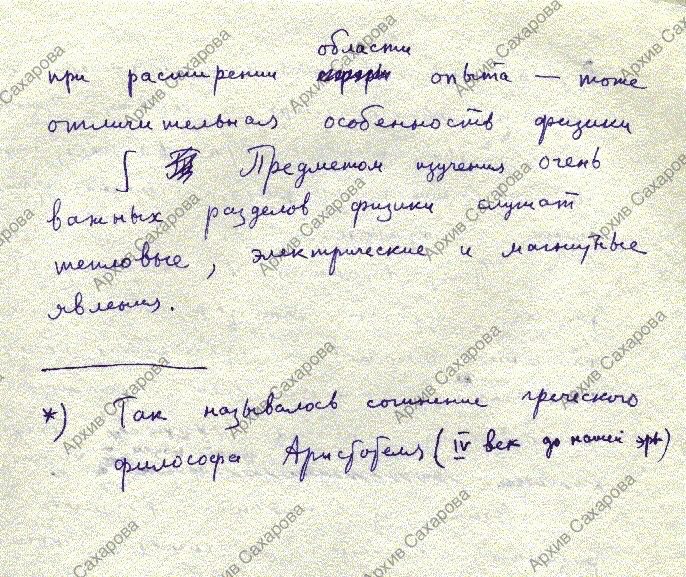 области
при расширении опыта — тоже
отличительная особенность физики
Предметом изучения очень
важных разделов физики служат
тепловые, электрические и магнитные
явления.
*) Так называлось сочинение греческого
философа Аристотеля (IV век до нашей эры)
Архив Сахарова